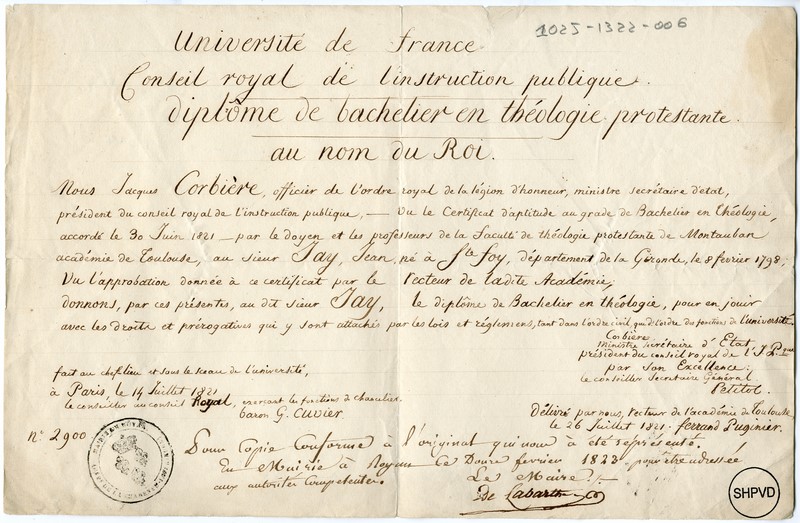 1025-1322-006
Université de France
Conseil royal de l'instruction publique.
diplôme de bachelier en théologie protestante.
au nom du Roi.
Nous Jacques Corbière, officier de l'ordre royal de la légion d'honneur, ministre secrétaire d'état,
président du conseil royal de l'instruction publique, — Vu le Certificat d'aptitude au grade de Bachelier en Théologie,
accordé le 30 Juin 1821 — par le doyen et les professeurs de la Faculté de théologie protestante de Montauban
académie de Toulouse, au sieur Jay, Jean, né à Ste foy, département de la Gironde, le 8 fevrier 1798;
Vu l'approbation donnée à ce certificat par le recteur de ladite Académie;
donnons, par ces présentes, au dit sieur Jay, le diplôme de Bachelier en théologie, pour en jouir
avec les droits et prérogatives qui y sont attachés par les lois et réglemens, tant dans l'ordre civil, que d'ordre des fonctions de l'université
Corbière
Ministre secrétaire d'Etat
président du conseil royal de l'I. Pque
par son Excellence:
le conseiller Secretaire Général
Petitot.
fait au cheflieu et sous le sceau de l'université,
à Paris, le 14 Juillet 1821
le conseiller au conseil Royal, exerçant les fonctions de chancelier.
baron G. Cuvier.
Délivré par nous, recteur de l'académie de Toulouse
le 26 Juillet 1821. ferrand Puginier.
n° 2900
Pour Copie Conforme à l'original qui nous à été représenté.
En Mairie à Royan ce Douze fevrier 1823 pour être adressée
aux autorités Compétentes.
Le Maire
De Labarthe
SHPVD